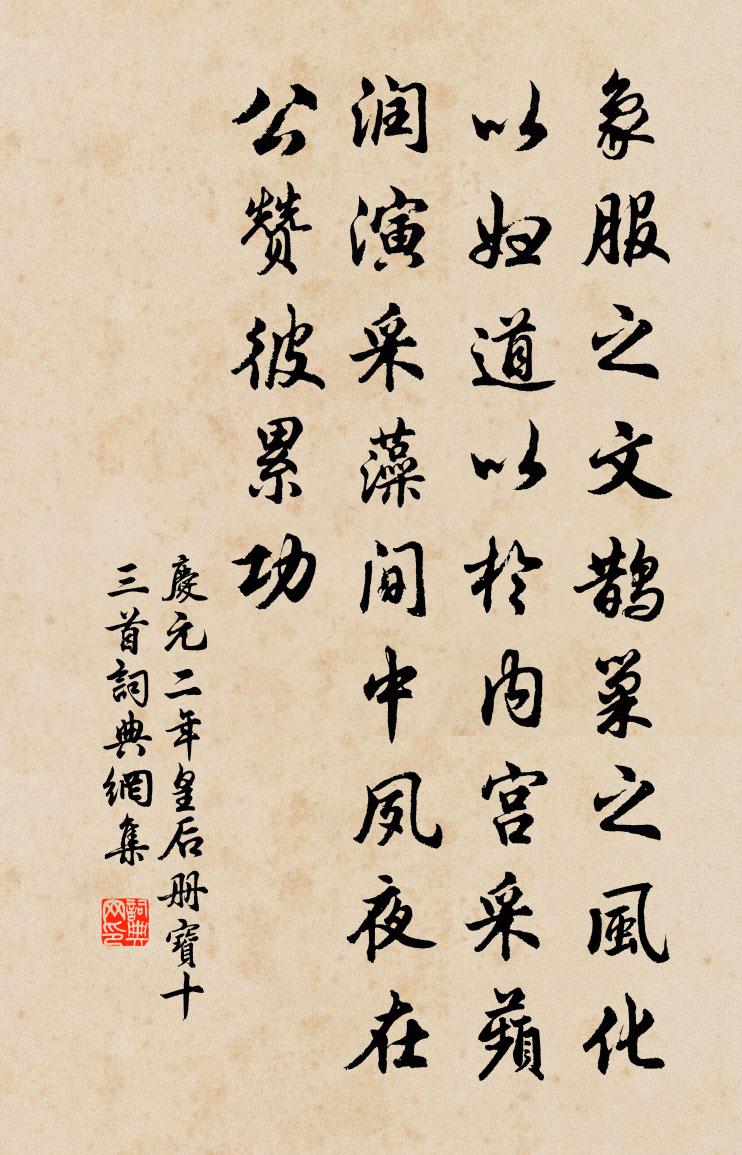 象服之文鹊巢之風化
以妇道以於内宫采蘋
润演采藻间中夙夜在
公赞彼累功
慶元二年皇后册寶十
三首詞典網集
詞典网印